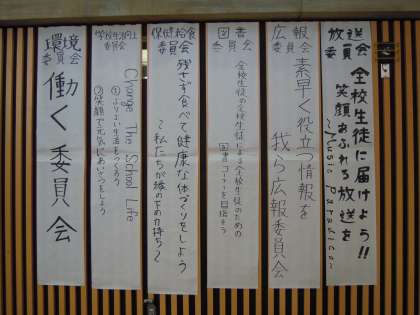 放送
委員会
全校生徒に届けよう!!
笑顔あふれる放送を
~Music Paradice~
広報
委員会
素早く役立つ情報を
我ら広報委員会
図書
委員会
全校生徒の全校生徒による全校生徒のための
図書コーナーを目指そう
保健給食
委員会
残さず食べて健康な体づくりをしよう
~私たちが縁の下の力持ち~
学校生活向上
委員会
Change The School Life
①よりよい生活をつくろう
②笑顔で元気にあいさつをしよう
環境
委員会
働く委員会